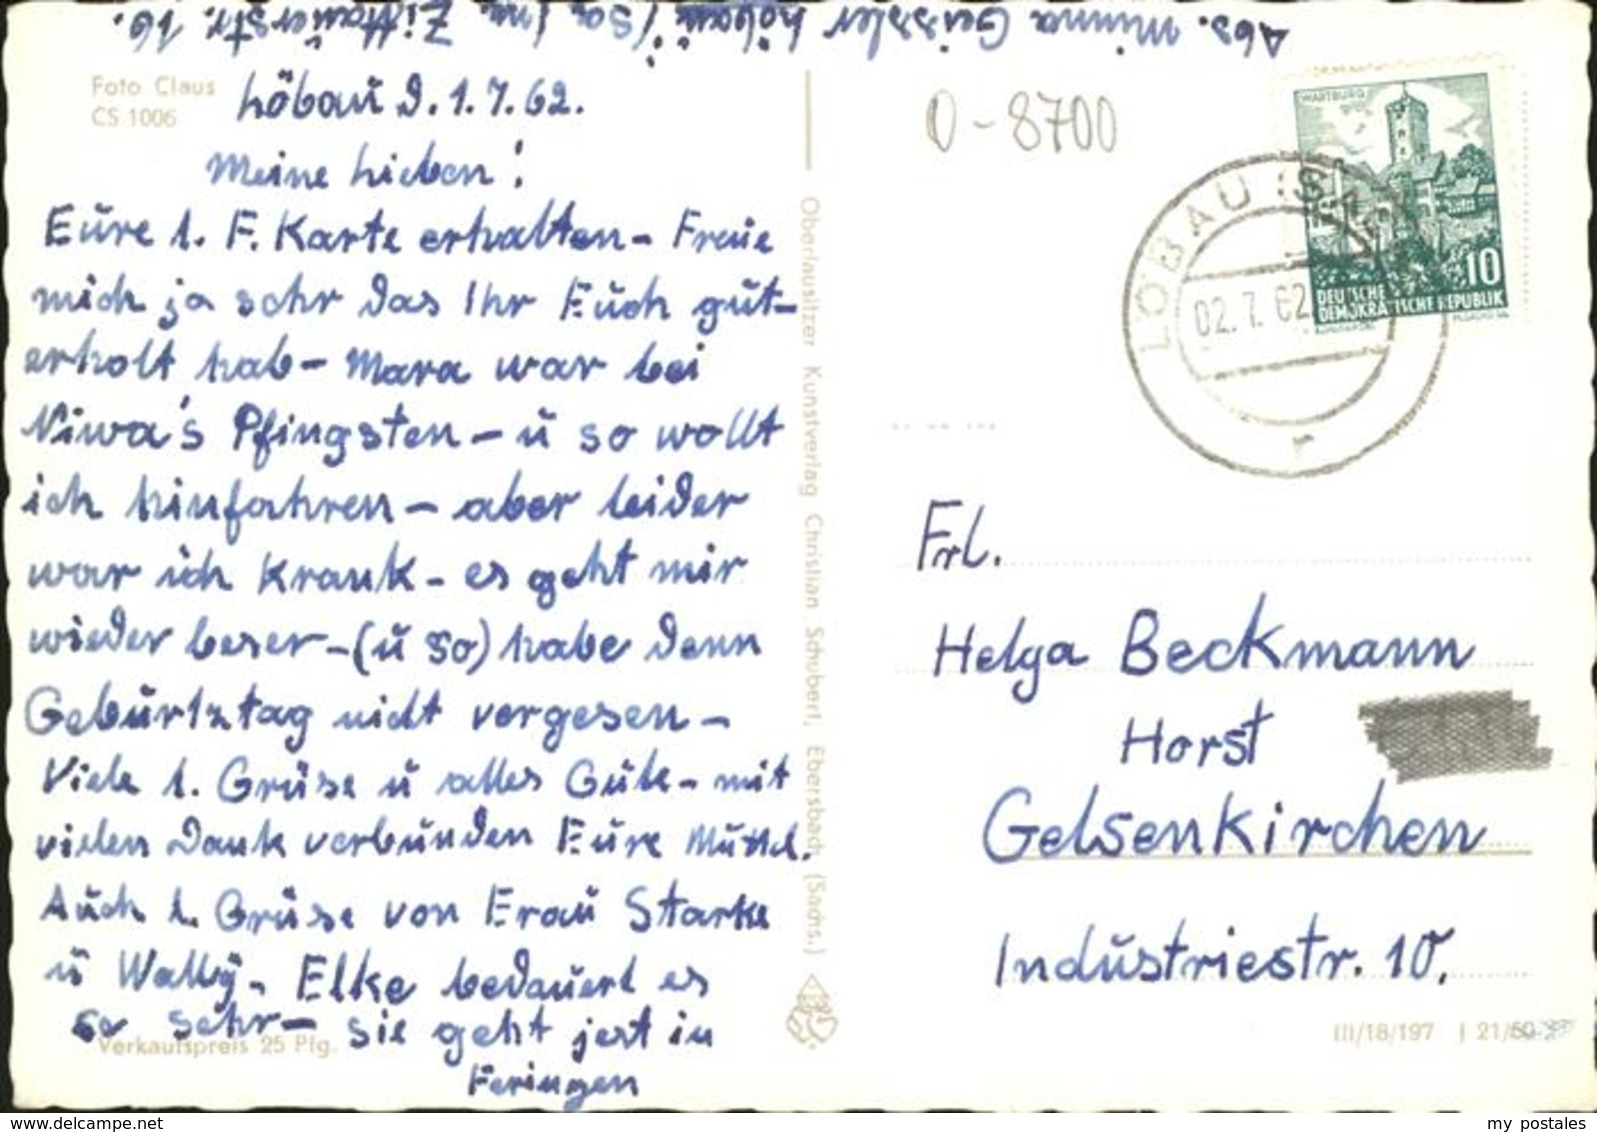 Abs. Minna Geissler Löbau (Sa) Zittauerstr. 16.
Foto Claus
CS 1006
Löbau d. 1.7.62.
Meine Lieben!
Eure l. F. Karte erhalten – Freue
mich ja sehr das Ihr Euch gut –
erholt hab – Mara war bei
Niwa's Pfingsten – u so wollt
ich hinfahren – aber leider
war ich Krank – es geht mir
wieder beser – (u so) habe denn
Geburtztag nicht vergesen –
Viele l. Grüse u alles Gute – mit
vielen Dank verbunden Eure Muttel.
Auch l. Grüse von Erau Starke
u Wally – Elke bedauert es
so sehr – sie geht jest in
Feringen
Verkaufspreis 25 Pfg.
Oberlausitzer Kunstverlag Christian Schubert, Ebersbach (Sachs.)
0-8700
WARTBURG
10
DEUTSCHE
DEMOKRATISCHE REPUBLIK
LÖBAU (SACHS)
02.7.62
r
Frl.
Helga Beckmann
Horst
Gelsenkirchen
Industriestr. 10.
III/18/197 J 21/60
my postales